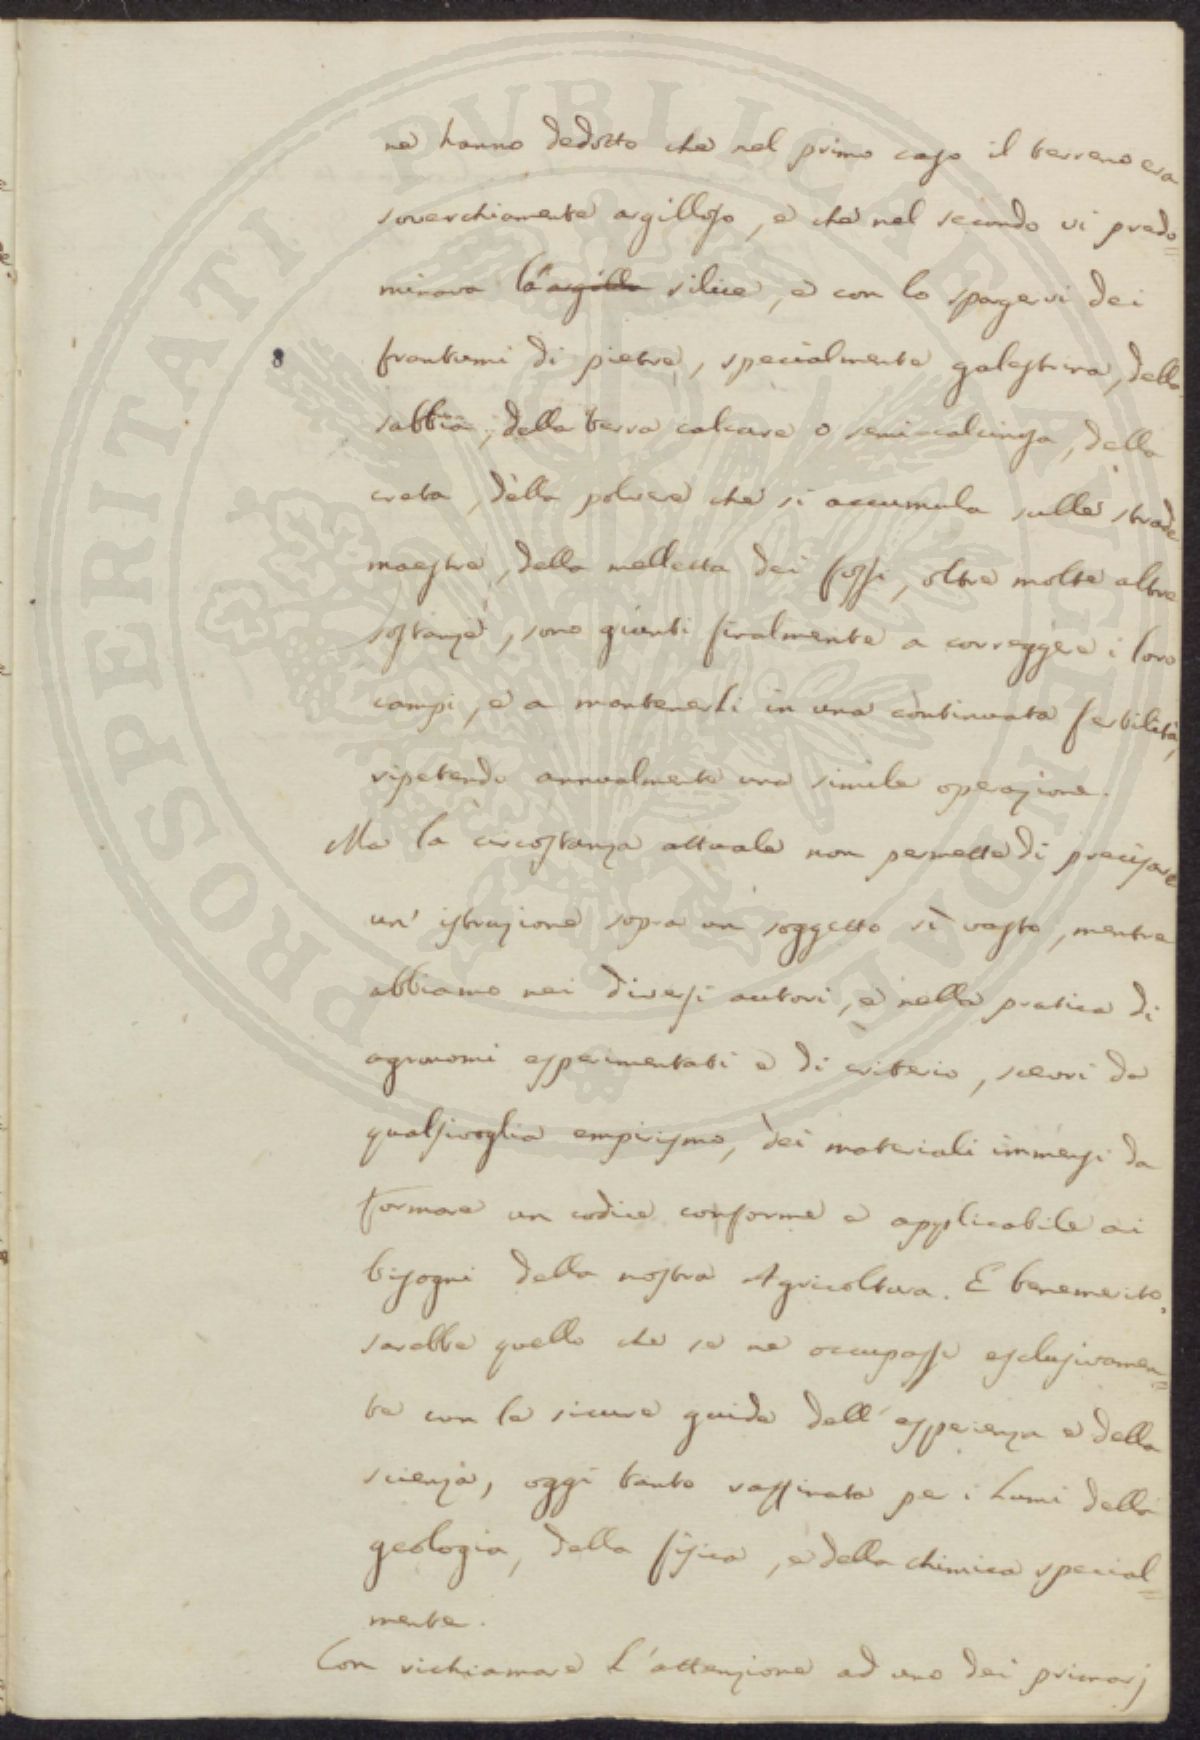 ne hanno dedotto che nel primo caso il terreno era
soverchiamente argilloso, e che nel secondo vi predo=
minava la argilla silice, e con lo spargervi dei
frantumi di pietre, specialmente galestrina, della
sabbia, della terra calcare o semi-calcinosa, della
creta, della polvere che si accumula sulle strade
maestre, della melletta dei fossi, oltre molte altre
sostanze, sono giunti finalmente a correggere i loro
campi, e a mantenerli in una continuata fertilità,
ripetendo annualmente una simile operazione.
Ma la circostanza attuale non permette di precisare
un' istruzione sopra un soggetto sì vasto, mentre
abbiamo nei diversi autori, e nella pratica di
agronomi esperimentati e di criterio, scevri da
qualsivoglia empirismo, dei materiali immensi da
formare un codice conforme e applicabile ai
bisogni della nostra Agricoltura. E benemerito
sarebbe quello che se ne occupasse esclusivamen=
te con le sicure guide dell' esperienza e della
scienza, oggi tanto raffinata per i Lumi della
geologia, della fisica, e della chimica special=
mente.
Con richiamare l'attenzione ad uno dei primarj
PROSPERITATI PUBLICAE AUGENDAE